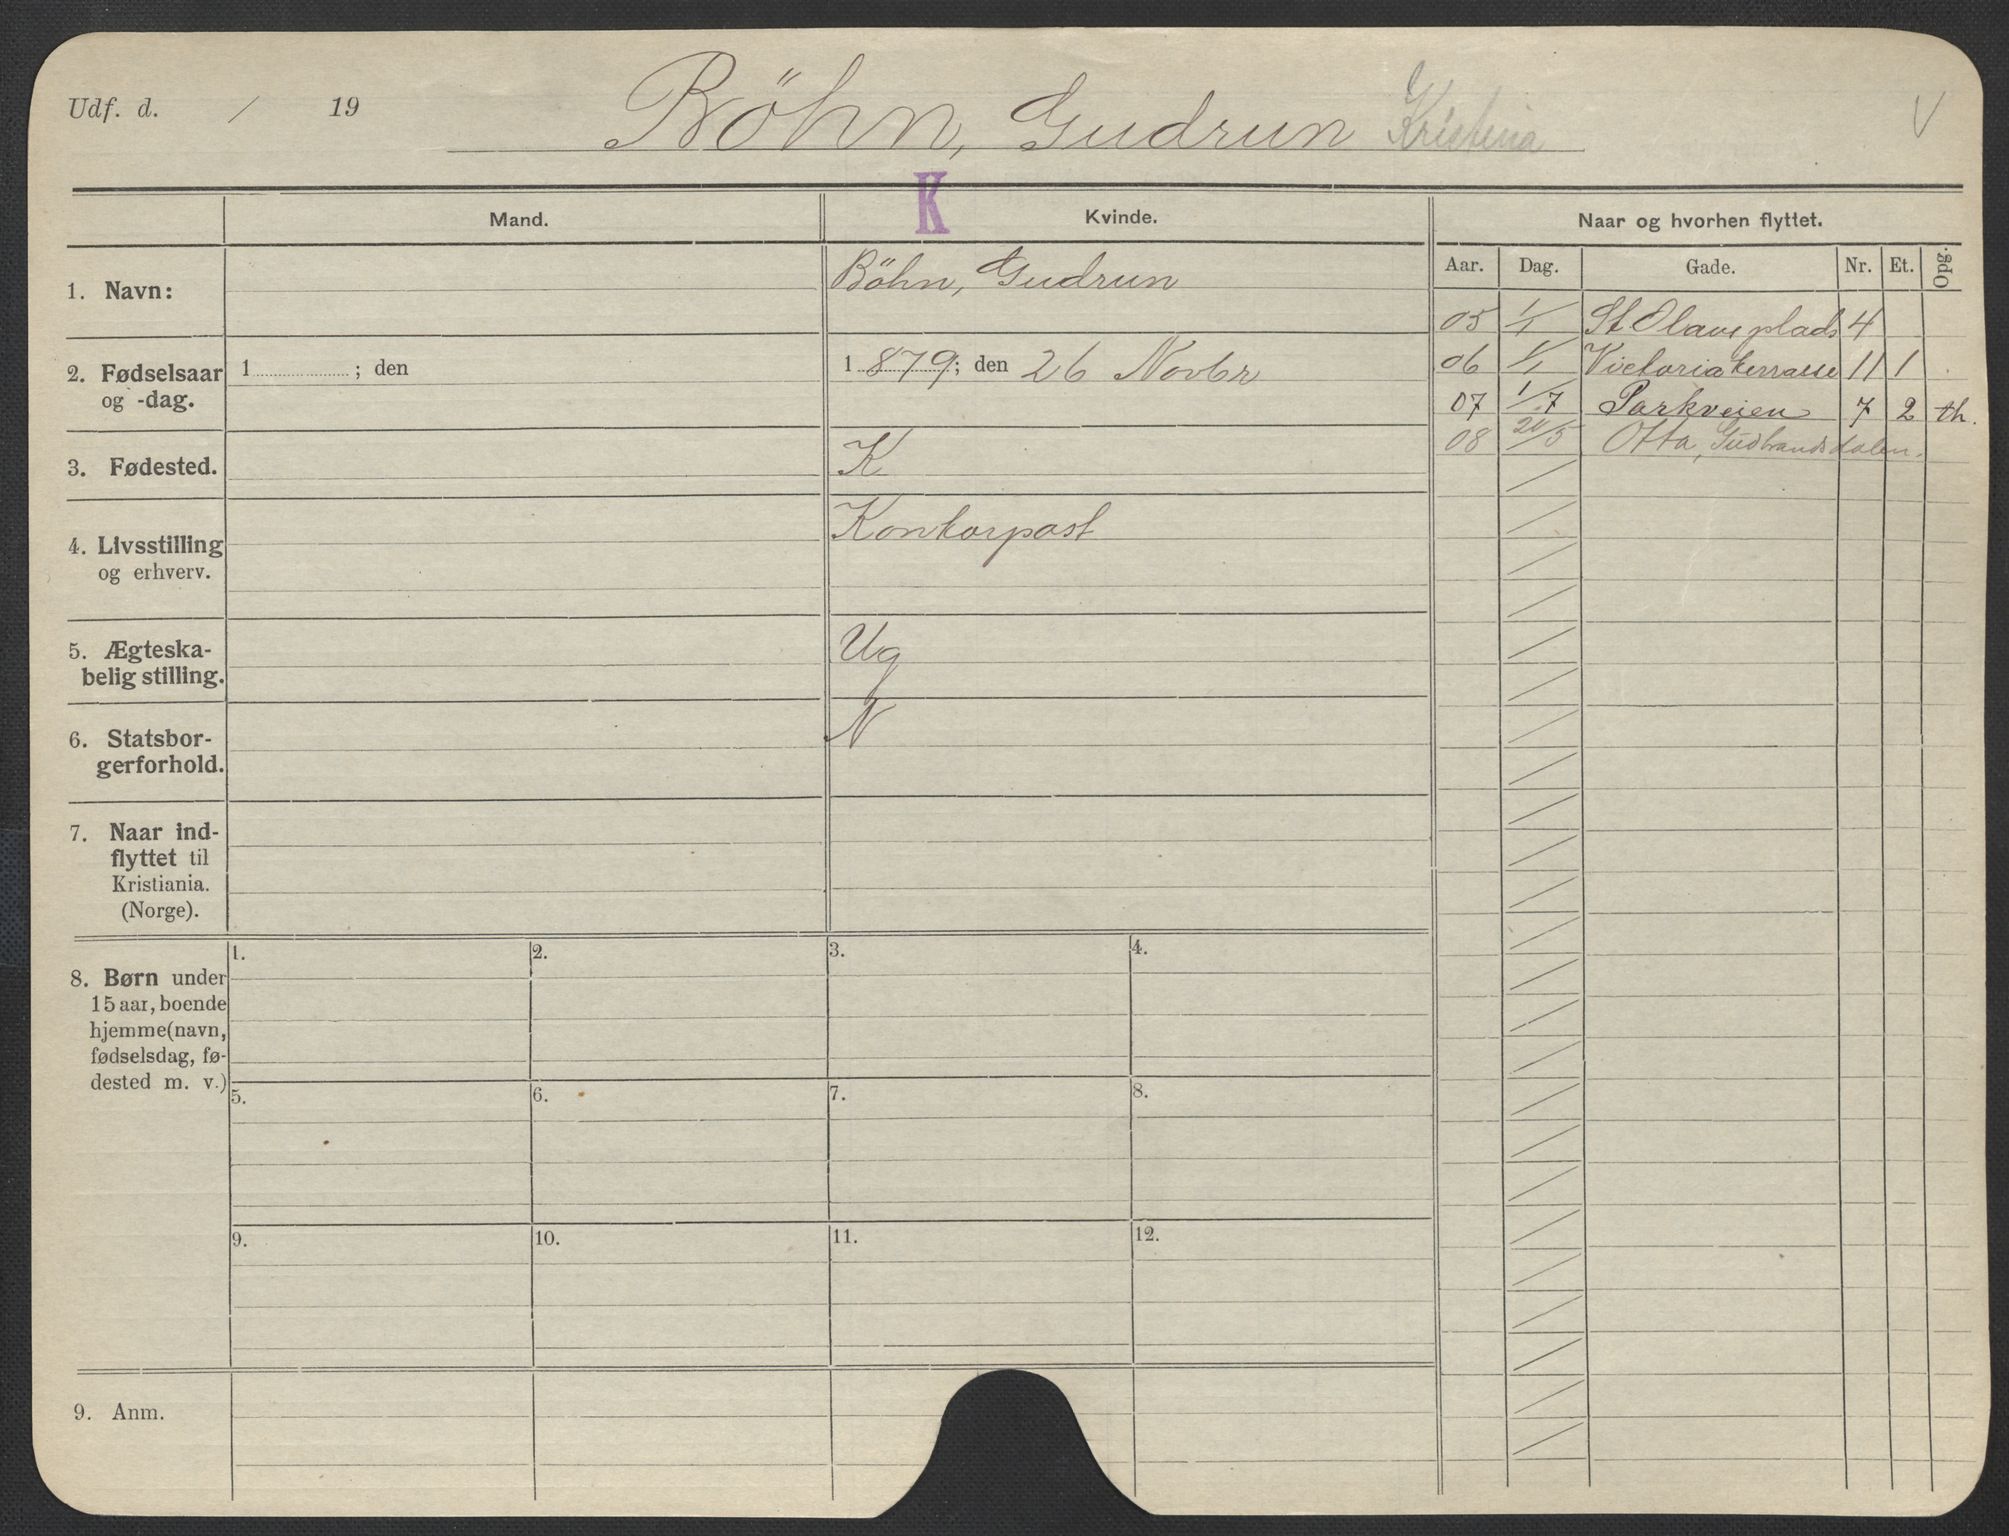 Udf. d. / 19 Böhn, Gudrun Kristina V
K
Mand. Kvinde. Naar og hvorhen flyttet.
Aar. Dag. Gade. Nr. Et. Opg.
1. Navn: Böhn, Gudrun
05 1/1 St Olavs plads 4
2. Fødselsaar og -dag. 1 ; den 1 879; den 26 Novbr
06 1/1 Victoria terrasse 11 1
07 1/7 Parkveien 7 2 th.
08 20/5 Otta, Gudbrandsdalen.
3. Fødested. K
4. Livsstilling Kontorpost
og erhverv.
5. Ægteska- Ug
belig stilling.
6. Statsbor- N
gerforhold.
7. Naar ind-
flyttet til
Kristiania.
(Norge).
8. Børn under
15 aar, boende
hjemme (navn,
fødselsdag, fø-
dested m. v.)
1. 2. 3. 4.
5. 6. 7. 8.
9. 10. 11. 12.
9. Anm.